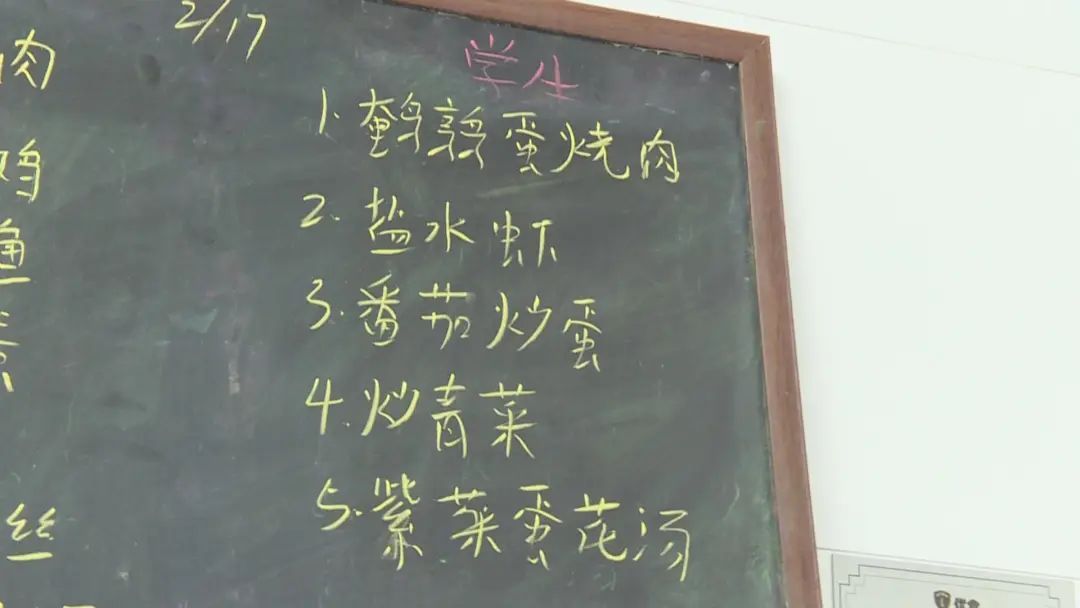 2/17
学生
1. 鹌鹑蛋烧肉
2. 盐水虾
3. 番茄炒蛋
4. 炒青菜
5. 紫菜蛋花汤
肉
鸡
鱼
丝